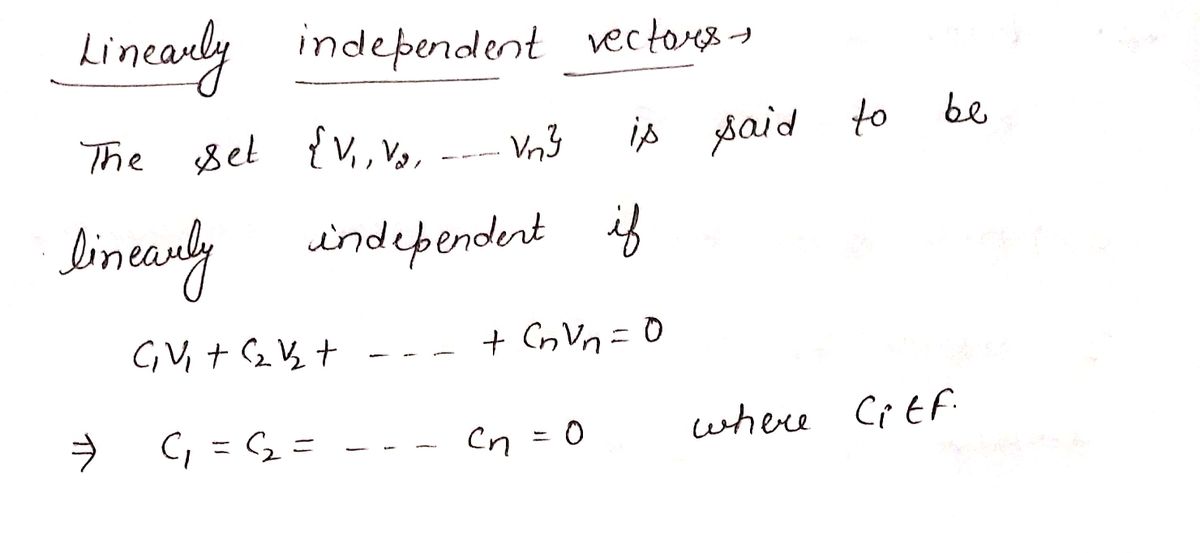 Linearly independent vectors →
The set {V₁, V₂, ---- Vn} is said to be
linearly independent if
C₁V₁ + C₂V₂ + --- + CnVn = 0
⇒ C₁ = C₂ = --- Cn = 0 where Ci ∈ F.